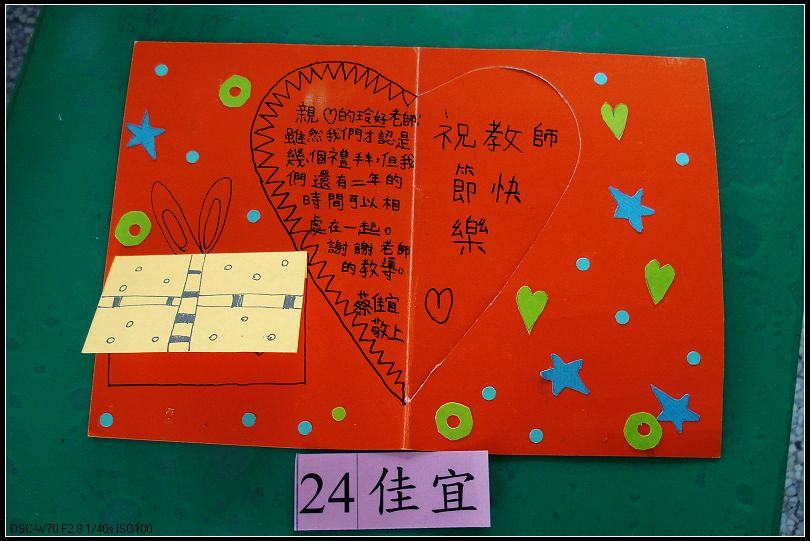 親♡的玲好老師:
雖然我們才認是
幾個禮拜,但我
們還有二年的
時間可以相
處在一起。
謝謝老師
的教導。
蔡佳宜
敬上
祝教師
節快
樂
24 佳宜
DSC-W70 F2.8 1/40s ISO100